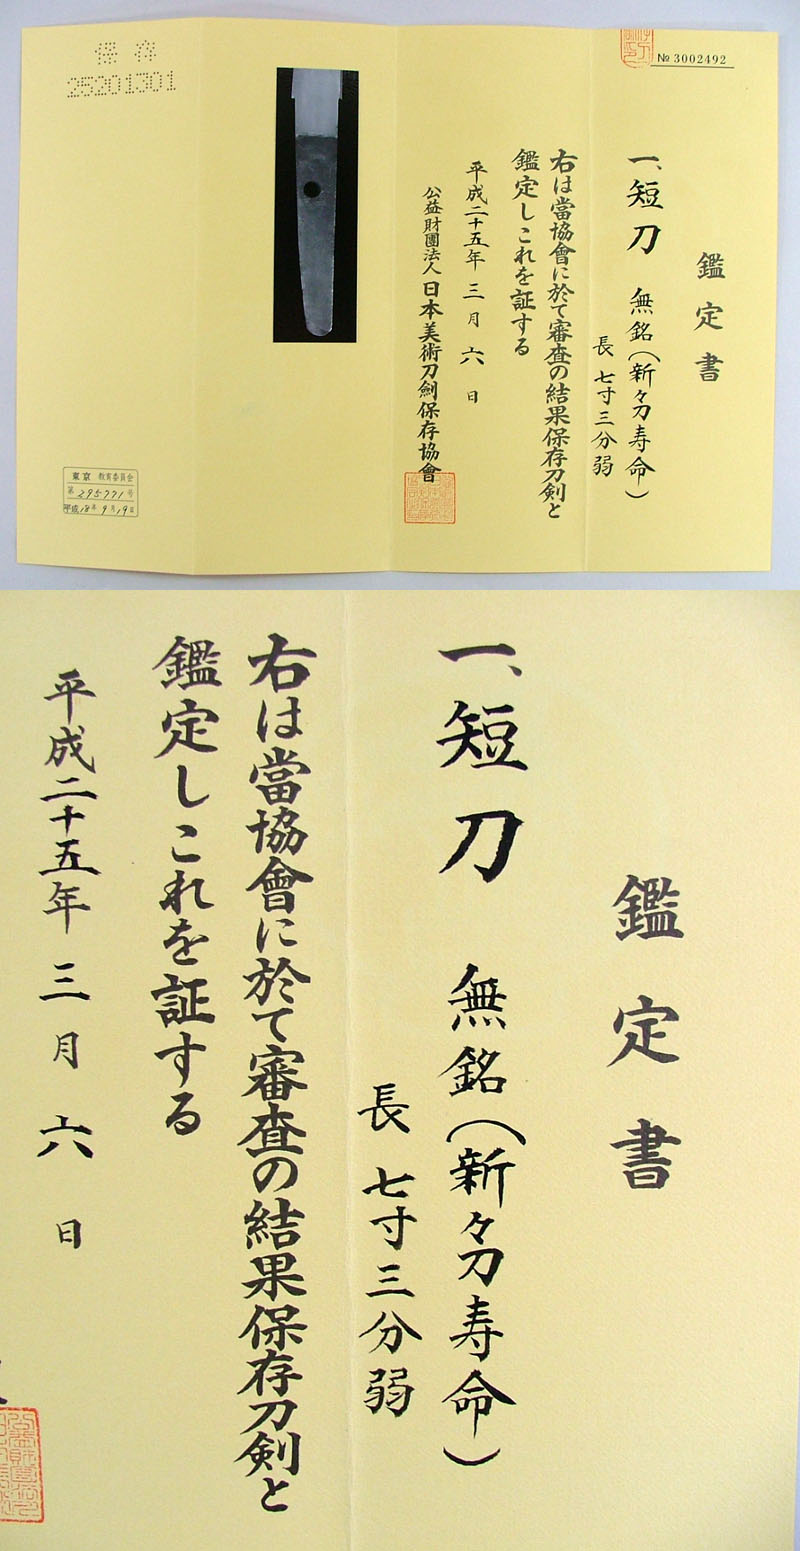 保存
25201301
№ 3002492
鑑定書
一、短刀 無銘(新々刀寿命)
長 七寸三分弱
右は當協會に於て審査の結果保存刀剣と
鑑定しこれを証する
平成二十五年 三月 六日
公益財團法人 日本美術刀劍保存協會
東京 教育委員会
第 295771号
平成18年9月19日
鑑定書
一、短刀 無銘(新々刀寿命)
長 七寸三分弱
右は當協會に於て審査の結果保存刀剣と
鑑定しこれを証する
平成二十五年 三月 六日